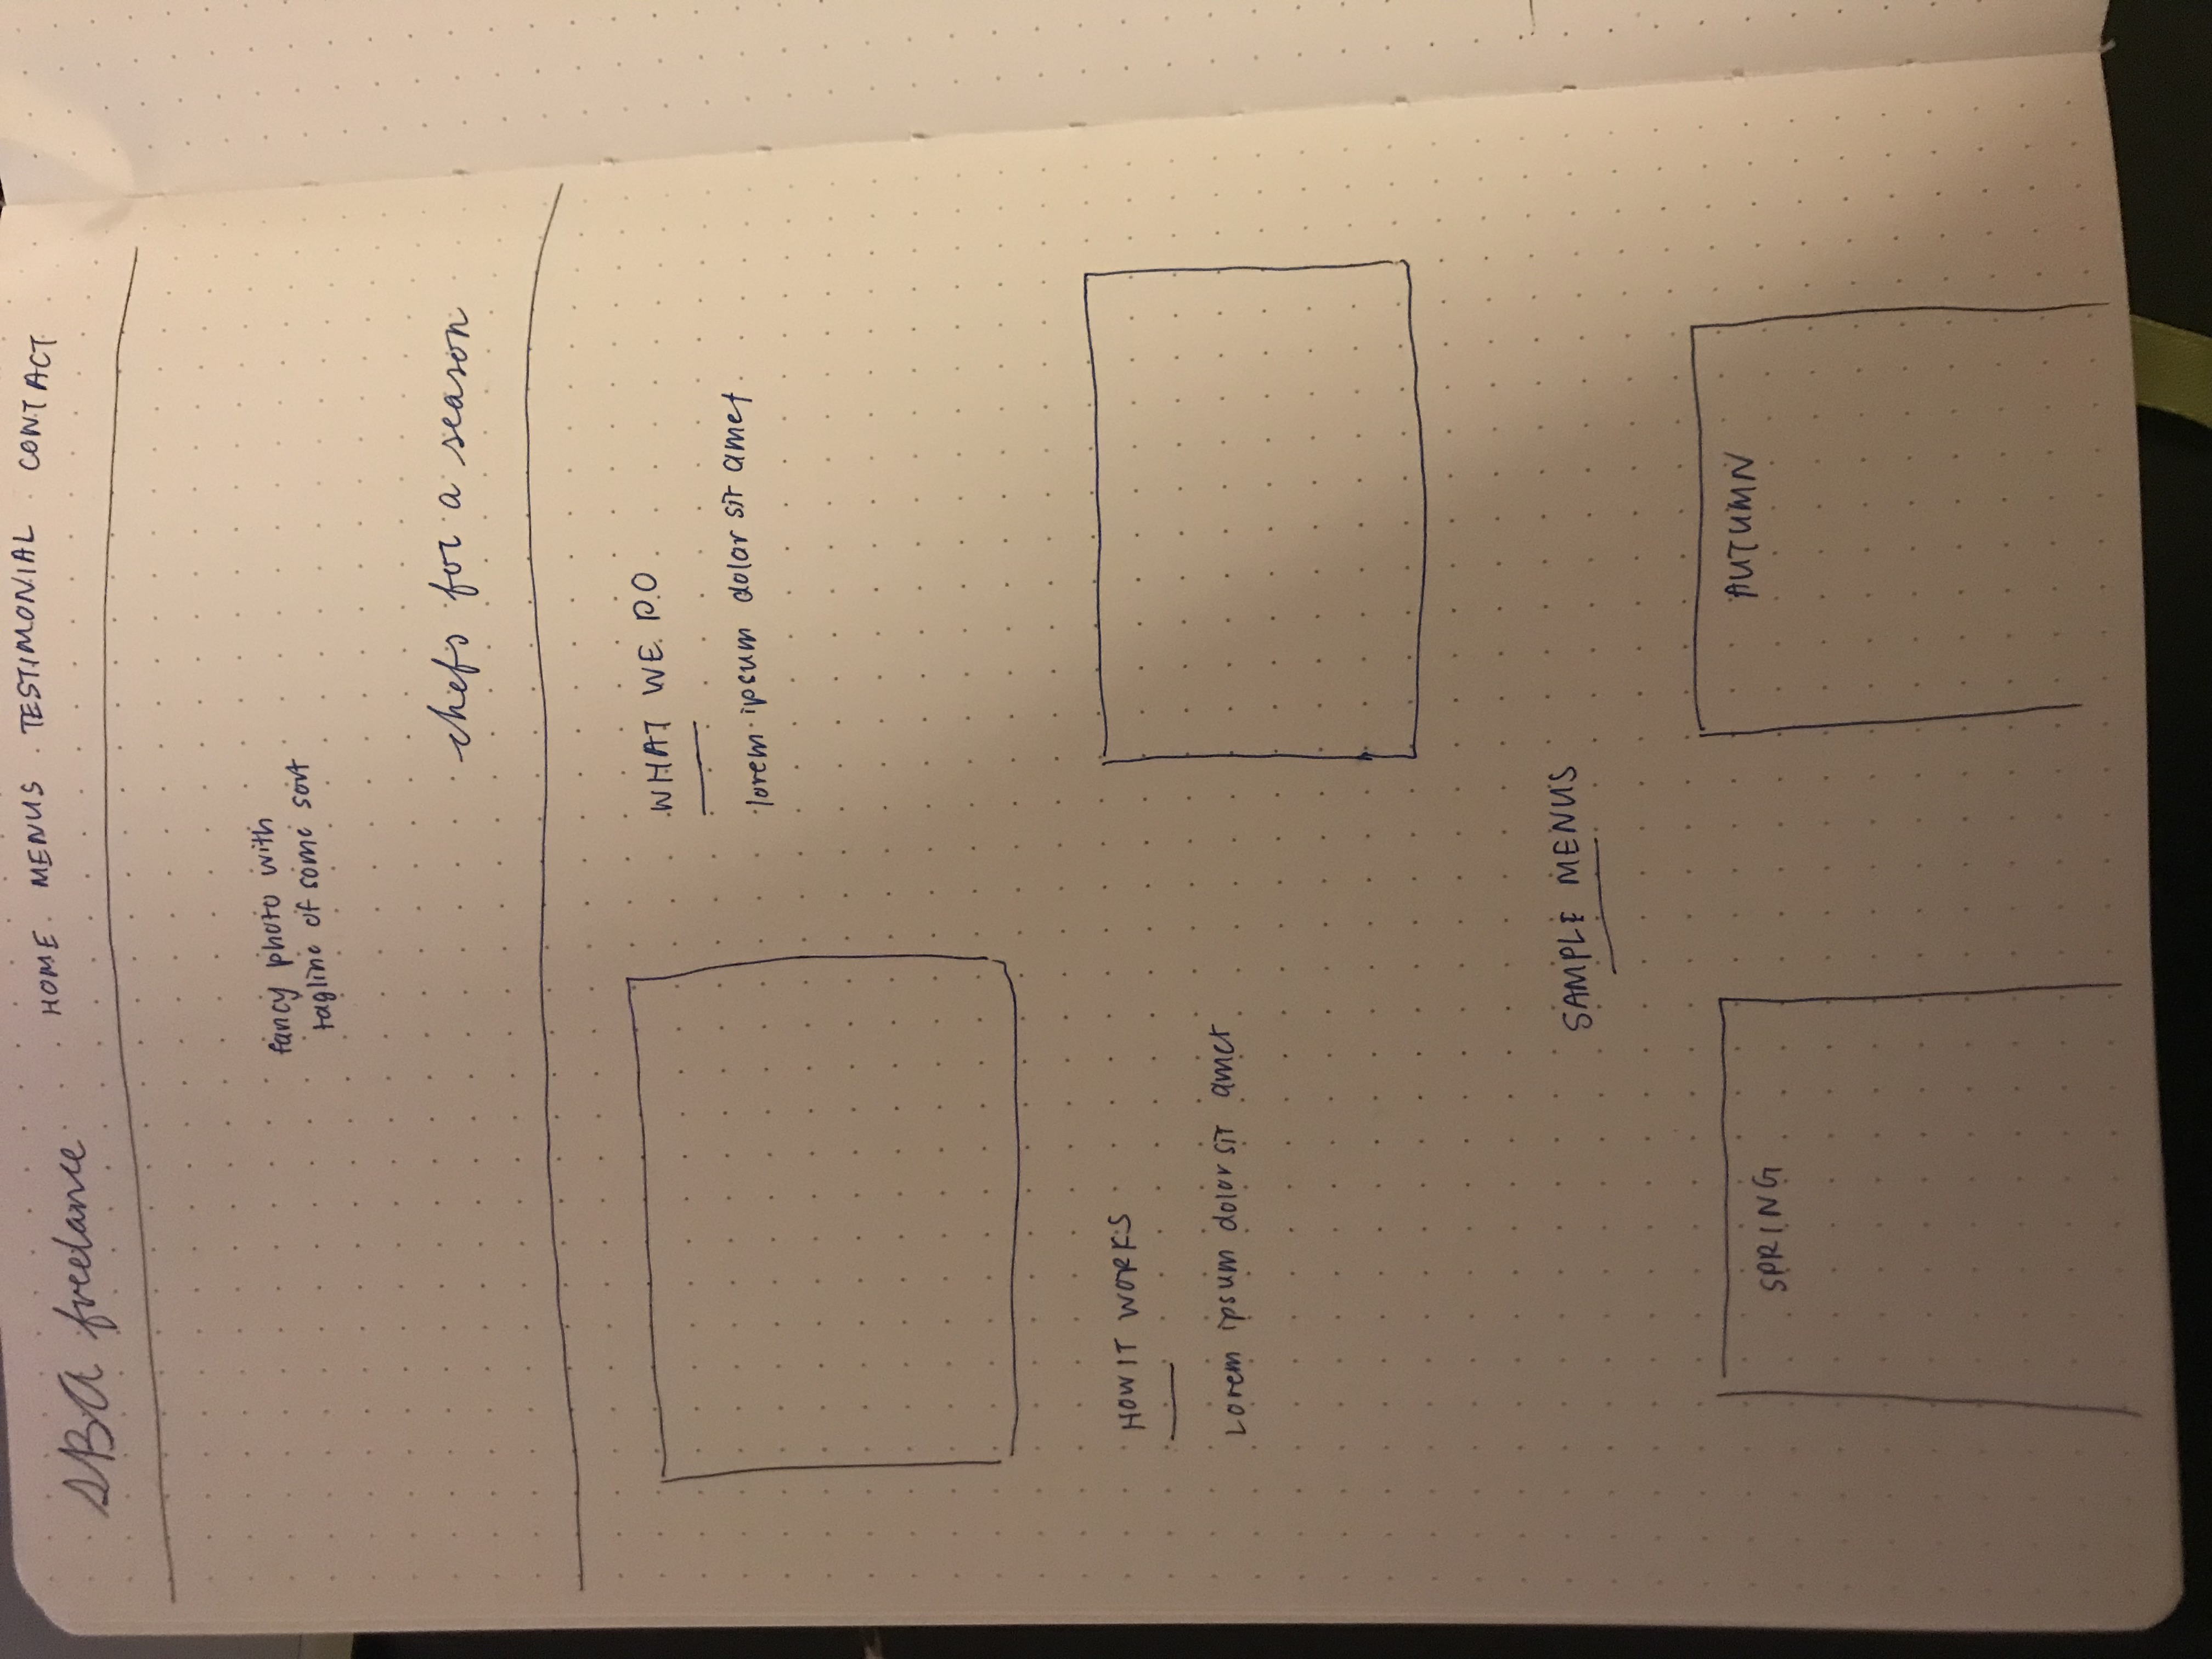 SBA freelance
HOME MENUS TESTIMONIAL CONTACT
fancy photo with
tagline of some sort
chefs for a season
WHAT WE DO
lorem ipsum dolor sit amet
HOW IT WORKS
Lorem ipsum dolor sit amet
SAMPLE MENUS
SPRING
AUTUMN